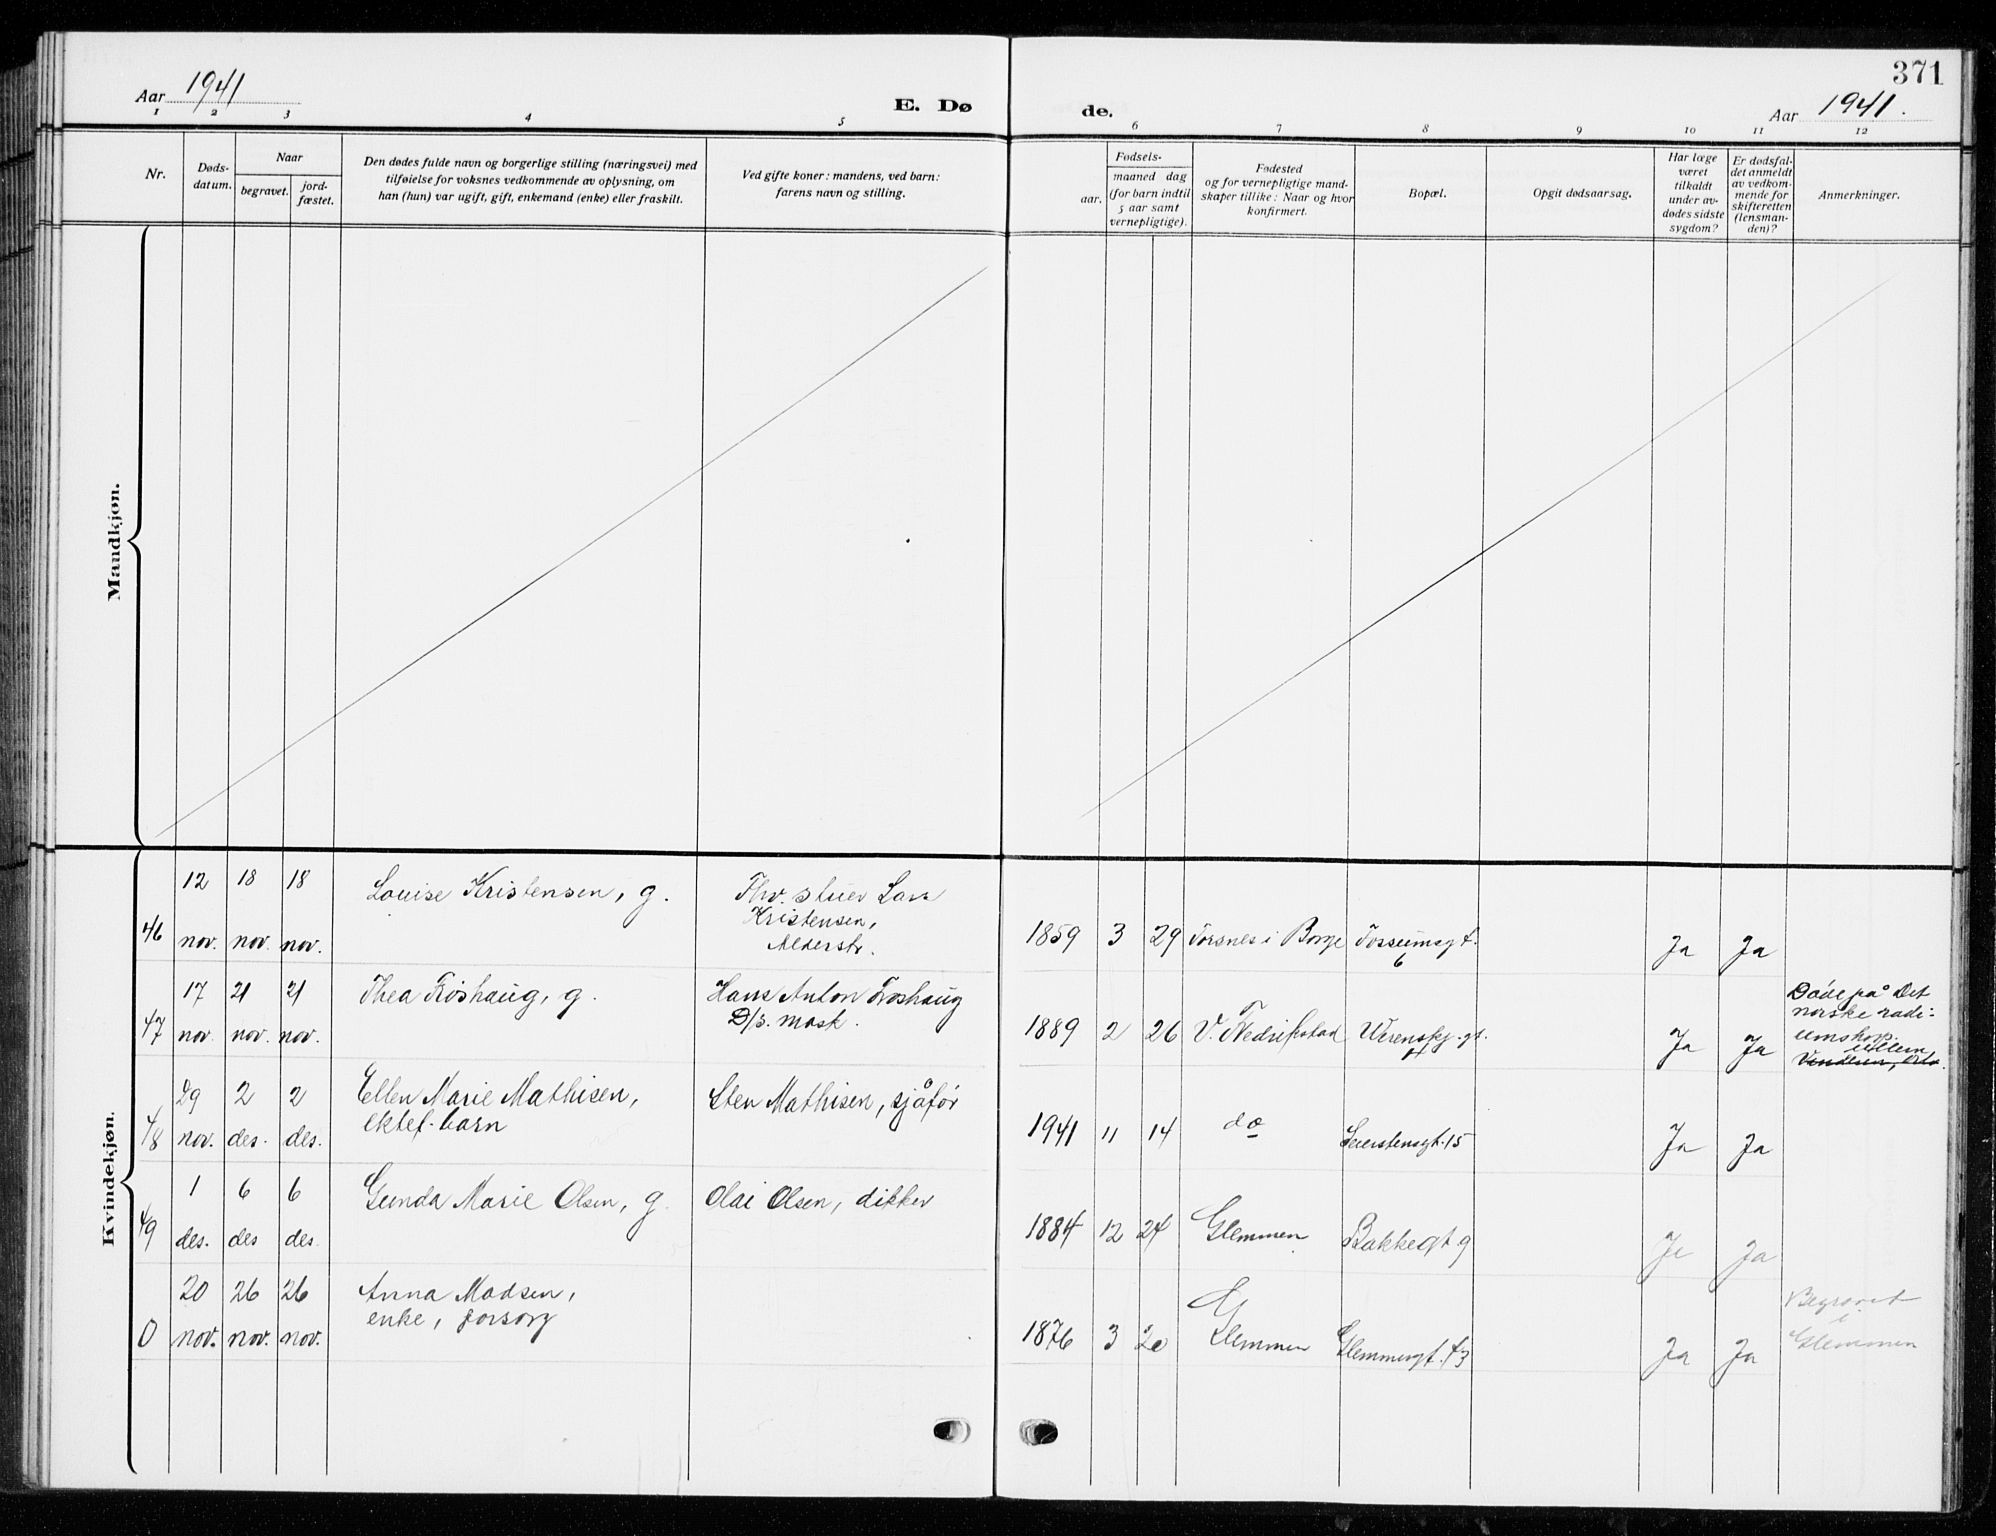 371
Aar 1941
E. Dø
de.
Aar 1941.
1 2 3 4 5 6 7 8 9 10 11 12
Nr.
Døds-
datum.
Naar
begravet.
jord-
fæstet.
Den dødes fulde navn og borgerlige stilling (næringsvei) med
tilføielse for voksnes vedkommende av oplysning, om
han (hun) var ugift, gift, enkemand (enke) eller fraskilt.
Ved gifte koner: mandens, ved barn:
farens navn og stilling.
aar.
Fødsels-
maaned dag
(for barn indtil
5 aar samt
vernepligtige).
Fødested
og for vernepligtige mand-
skaper tillike: Naar og hvor
konfirmert.
Bopæl.
Opgit dødsaarsag.
Har læge
været
tilkaldt
under av-
dødes sidste
sygdom?
Er dødsfal-
det anmeldt
av vedkom-
mende for
skifteretten
(lensman-
den)?
Anmerkninger.
Mandkjøn.
Kvindekjøn.
46
12 18 18
nov. nov. nov.
Louise Kristensen, g.
Fhv. stuer Lars
Kristensen,
Alderstr.
1859 3 29 Torsnes i Borge
Fossumsgt.
6
Ja Ja
47
17 21 21
nov. nov. nov.
Thea Froshaug, g.
Hans Anton Froshaug
D/s. mask.
1889 2 26 V. Fredrikstad
Werenskj.gt.
Ja Ja
Døde på Det
norske radi-
umshosp.
48
29 2 2
nov. des. des.
Ellen Marie Mathisen,
ektef. barn
Sten Mathisen, sjåfør
1941 11 14 do
Seierstensgt. 15
Ja Ja
49
1 6 6
des. des des.
Gunda Marie Olsen, g.
Olai Olsen, dikker
1884 12 24 Glemmen
Bakkegt 9
Ja Ja
0
20 26 26
nov. nov. nov.
Anna Madsen,
enke, forsorg
1876 3 20 Glemmen
Glemmengt. 43
Ja Ja
Begravet
i
Glemmen